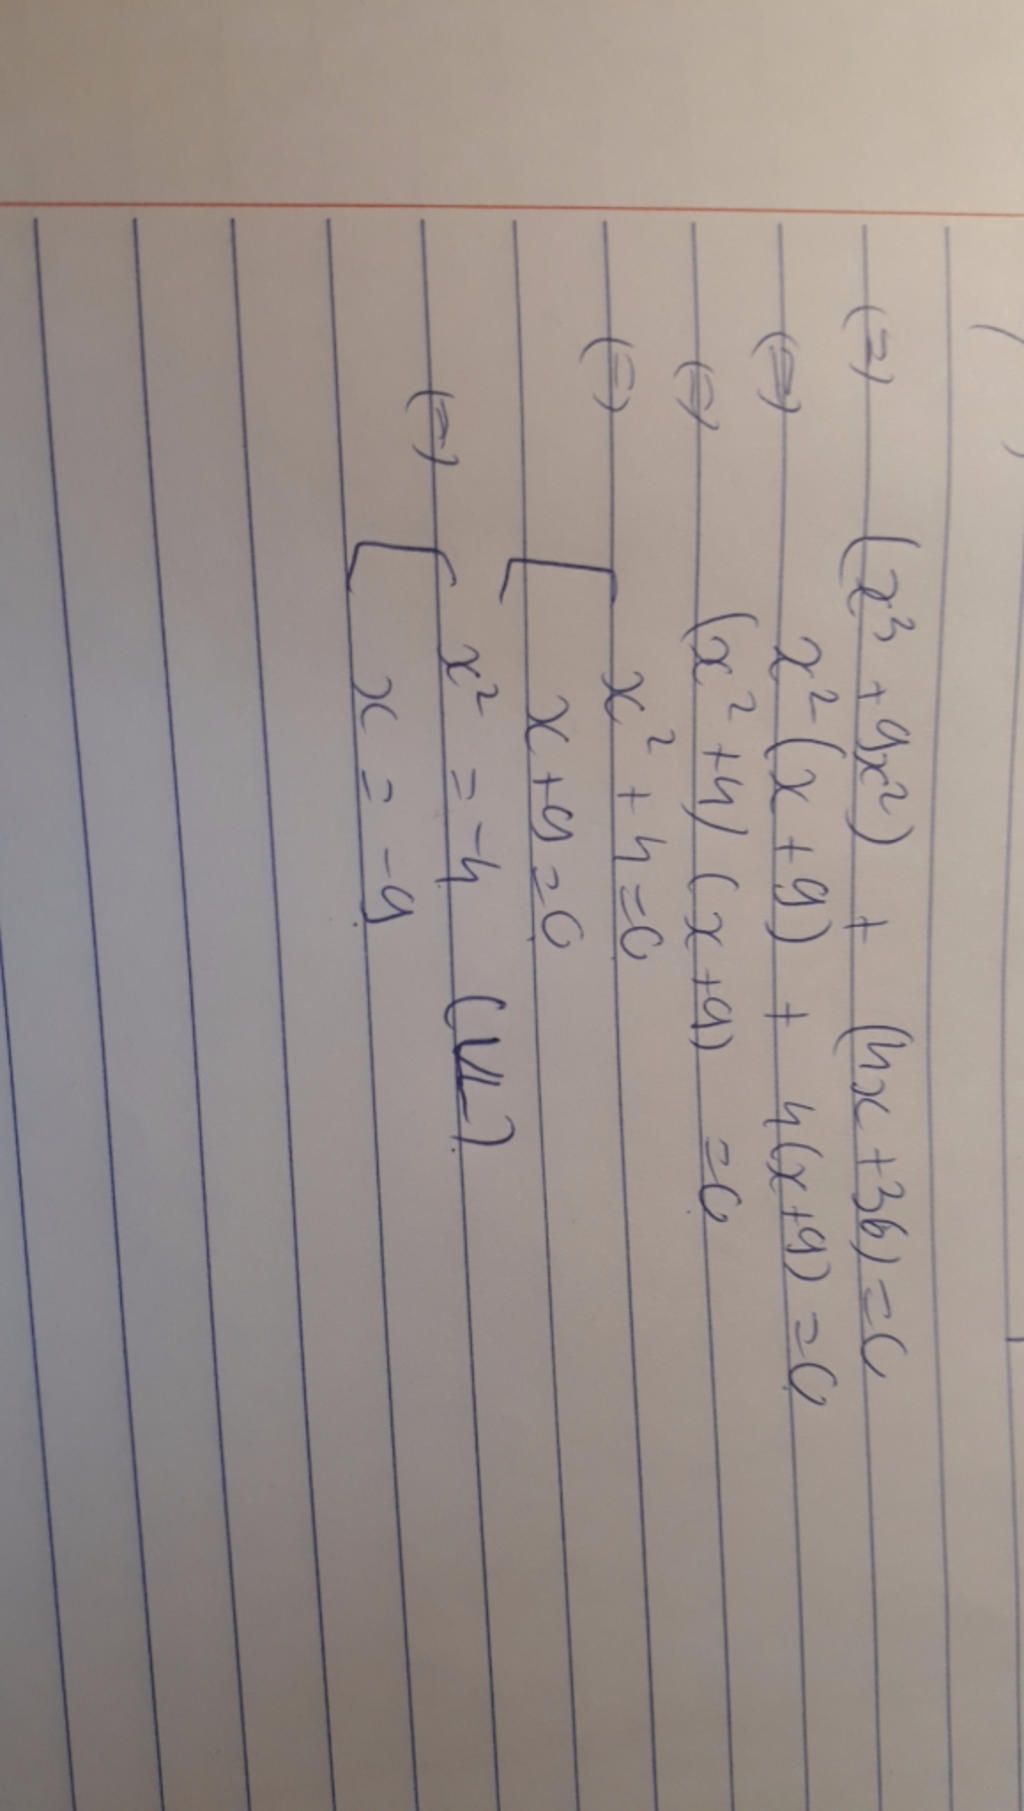 (=) (x³ + 9x²) + (4x + 36) = 0
(=) x²(x + 9) + 4(x + 9) = 0
(=) (x² + 4) (x + 9) = 0
(=) [ x² + 4 = 0
x + 9 = 0
(=) [ x² = -4 (VL)
x = -9